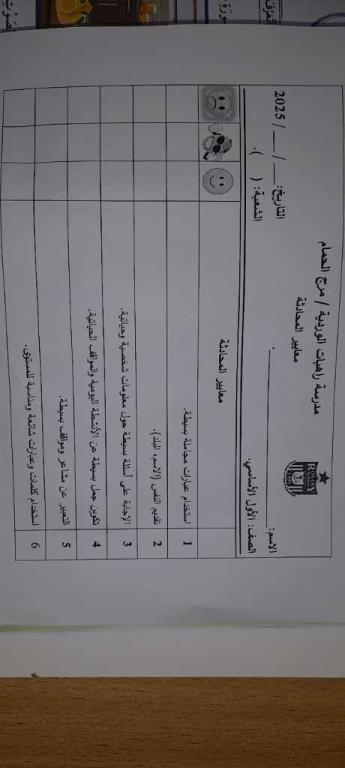 مدرسة راهبات الوردية / مرج الحمام
معايير المحادثة
الاسم:__________. التاريخ: __ / __ / 2025
الصف: الأول الأساسي. الشعبة: ( ).
معايير المحادثة
1 استخدام عبارات مجاملة بسيطة.
2 تقديم النفس (الاسم، البلد).
3 الإجابة على أسئلة بسيطة حول معلومات شخصية وحياتية.
4 تكوين جمل بسيطة عن الأنشطة اليومية والمواقف الحياتية.
5 التعبير عن مشاعر ومواقف بسيطة.
6 استخدام كلمات وعبارات شائعة ومناسبة للمستوى.